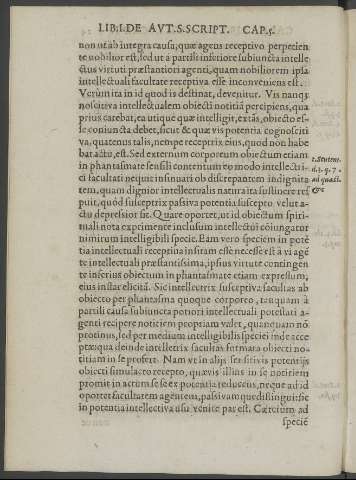 LIB.I. DE AVT. S. SCRIPT. CAP.5.
non ut ab integra causa, quæ agens receptivo perpetien
te nobilior est, sed ut a partili inferiore subiuncta intelle
ctus virtuti præstantiori agenti, quam nobiliorem ipsa
intellectuali facultate receptiva esse inconveniens est.
Verum ita in id quod is destinat, devenitur. Vis nanq;
noscitiva intellectualem obiecti notitiā percipiens, qua
prius carebat, ea utique quæ intelligit, extās, obiecto es-
se coniuncta debet, sicut & quævis potentia cognosciti
va, quatenus talis, nempe receptrix eius, quod non habe
bat actu, est. Sed externum corporeum obiectum etiam
in phantasmate sensili contentum eo modo intellecti-
ci facultati nequit insinuari ob discrepantem indignita
tem, quam dignior intellectualis natura ita sustinere res
puit, quòd susceptrix passiva potentia suscepto velut a-
ctu depressior sit. Quare oportet, ut id obiectum spiri-
tuali nota exprimente inclusum intellectũi coiungatur
nimirum intelligibili specie. Eam vero speciem in potē
tia intellectuali receptiva insitam esse necesse est à vi agē
te intellectuali præstantissima, ipsius virtute contingen
te inferius obiectum in phantasmate etiam expressum,
eius instar elicitā. Sic intellectrix susceptiva facultas ab
obiecto per phantasma quoque corporeo, tanquam à
partili causa subiuncta potiori intellectuali potestati a-
genti recipere notitiem propriam valet, quanquam nō
protinus, sed per medium intelligibilis speciei inde acce
ptæ; qua deinde intellectrix facultas formata obiecti no-
titiam in se profert. Nam ut in alijs sensitivis potentijs
obiecti simulacro recepto, quævis illius in se notitiem
promit in actum se se ex potentia reducens, neque ad id
oportet facultatem agentem, passivamque distingui: sic
in potentia intellectiva usu venire par est. Cæterum ad
specie
1. Sentent.
d. 3. q. 7.
ad quæsti.
&c